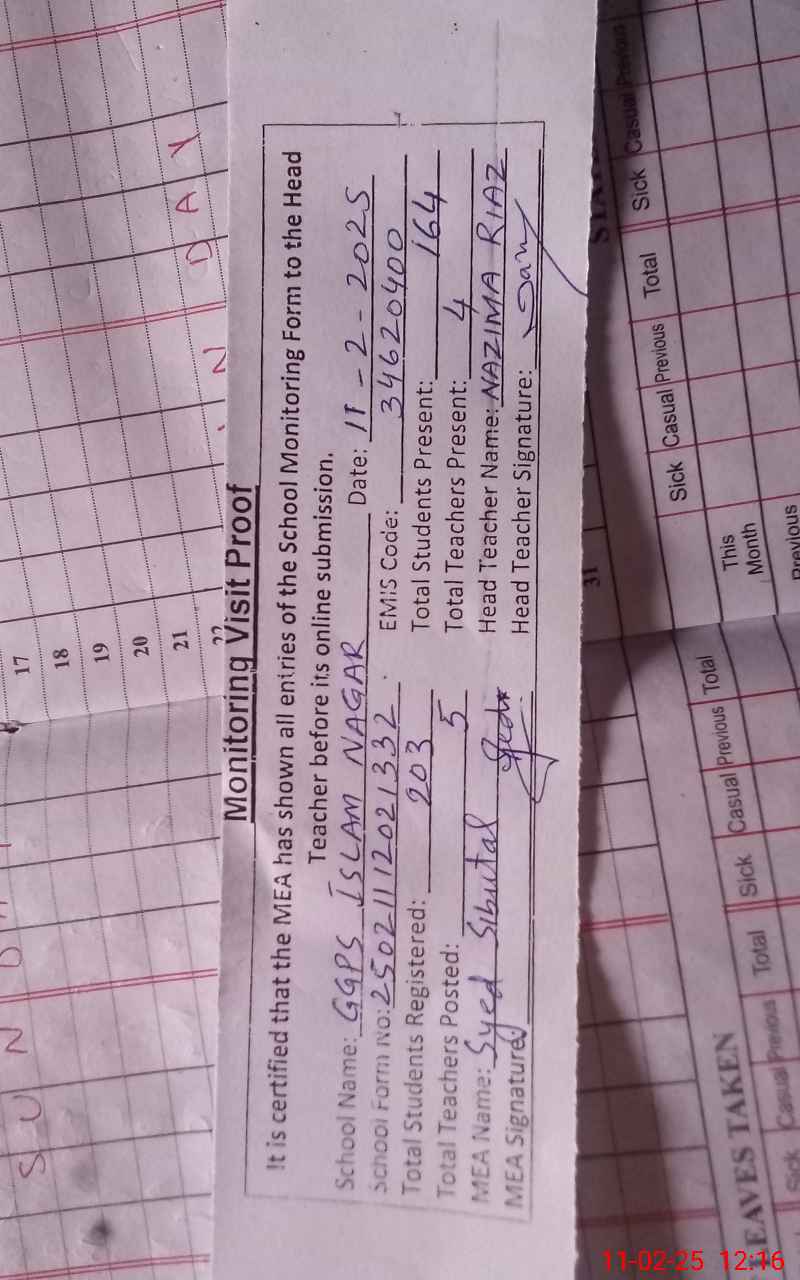 17
18
19
20
21
22
S U N D A Y
Monitoring Visit Proof
It is certified that the MEA has shown all entries of the School Monitoring Form to the Head
Teacher before its online submission.
School Name: GGPS ISLAM NAGAR Date: 11-2-2025
School Form No: 25021112021332 EMIS Code: 34620400
Total Students Registered: 203 Total Students Present: 164
Total Teachers Posted: 5 Total Teachers Present: 4
MEA Name: Syed Sibutal Head Teacher Name: NAZIMA RIAZ
MEA Signature: Head Teacher Signature:
31
LEAVES TAKEN
Sick Casual Previous Total Sick Casual Previous Total
This
Month
Sick Casual Previous Total Sick Casual Previous
Previous
11-02-25 12:16